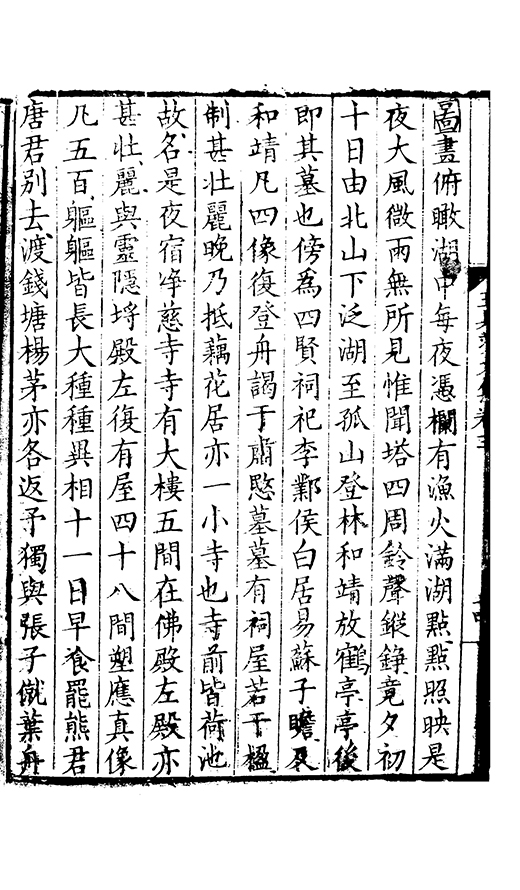 圖畫俯瞰湖中每夜憑欄有漁火滿湖點點照映是
夜大風微雨無所見惟聞塔四周鈴聲鏦錚竟夕初
十日由北山下泛湖至孤山登林和靖放鶴亭亭後
即其墓也傍為四賢祠祀李鄴侯白居易蘇子瞻及
和靖凡四像復登舟謁于肅愍墓墓有祠屋若干楹
制甚壯麗晚乃抵藕花居亦一小寺也寺前皆荷池
故名是夜宿淨慈寺寺有大樓五間在佛殿左殿亦
甚壯麗與靈隱埒殿左復有屋四十八間塑應真像
凡五百軀軀皆長大種種異相十一日早飡罷熊君
唐君別去渡錢塘楊茅亦各返予獨與張子僦葉舟